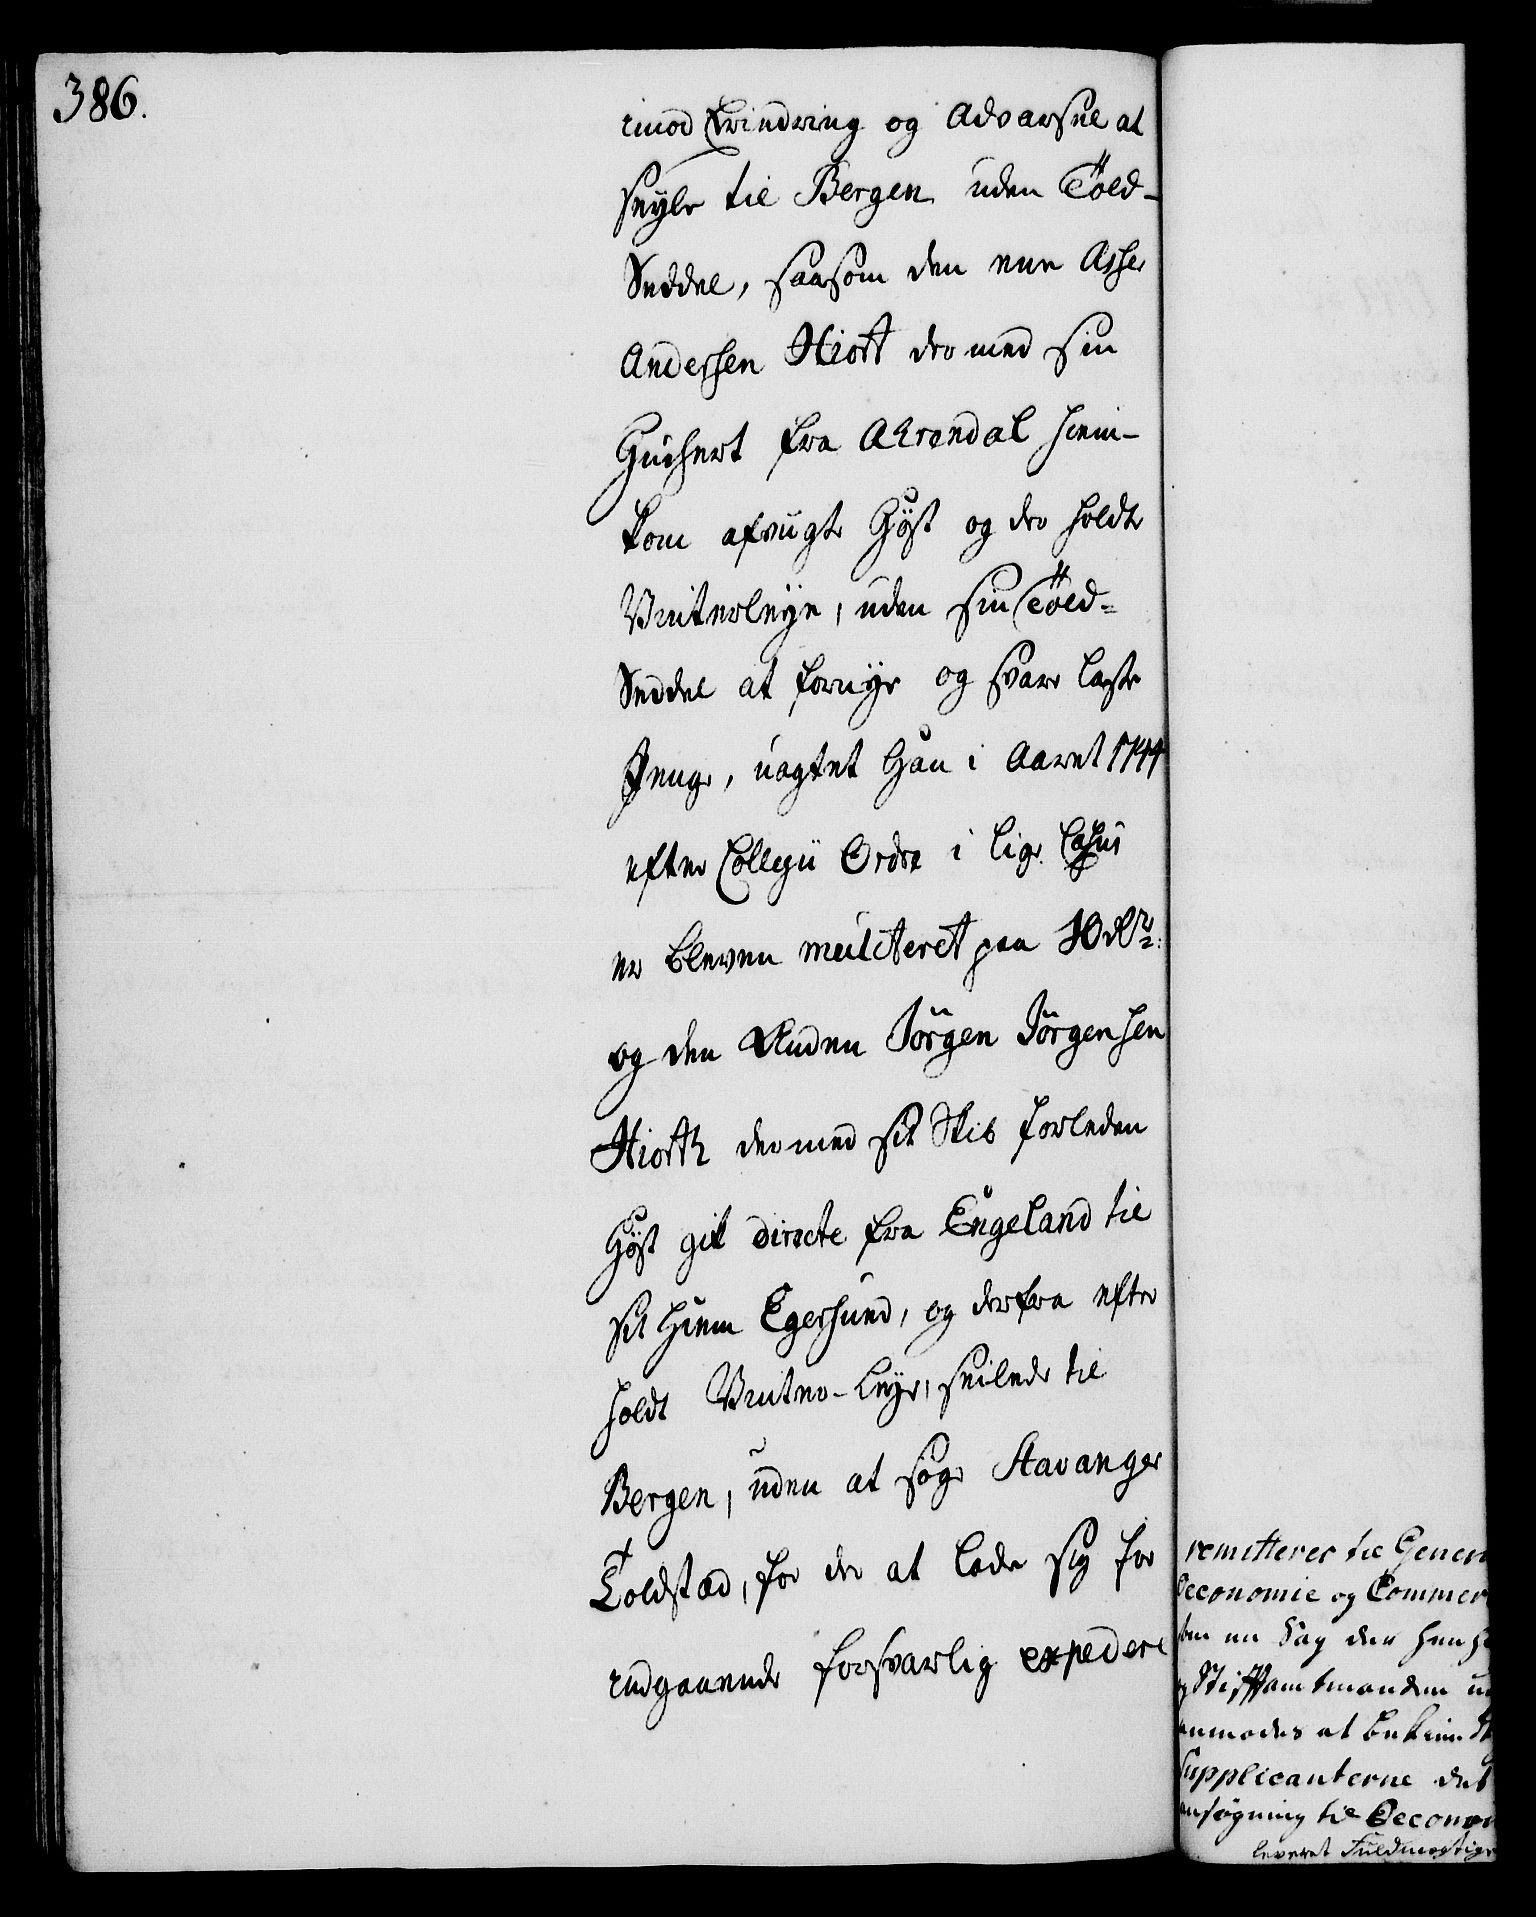 386.
imod Erindring og Advarsel at
seyle til Bergen uden Told-
Seddel, saasom den eene Asser
Andersen Hiort der med sin
Guckert fra Arendal hiem-
kom afvigte Høst og der holdte
Vinterleye, uden sin Told-
Seddel at fornye og svare Laste
Penge, uagtet han i Aaret 1744
efter Collegii Ordre i lige Casu
er bleven mulcteret paa 10 Rdr:
og den Anden Jörgen Jörgensen
Hiorth der med sit Skib forleden
Høst gik directe fra Engeland til
sit Hiem Egersund, og derfra efter
holdt Vinter-Leye, seilede til
Bergen, uden at søge Stavanger
Toldstæd, for der at lade sig for
indgaaende forsvarlig expedere
remitteres til Gener
Oeconomie og Commer
som en Sag der hen h
og Stiftamtmanden u
anmodes at bekiendt
Supplicanterne det
ansøgning til Oeconom
leveret Fuldmægtige